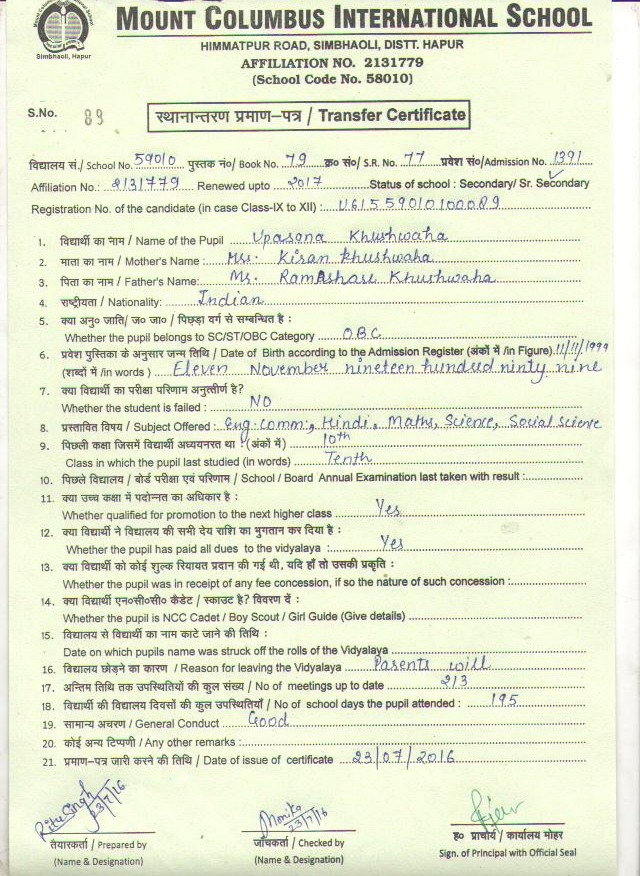 MOUNT COLUMBUS INTERNATIONAL SCHOOL
Simbhaoli, Hapur
HIMMATPUR ROAD, SIMBHAOLI, DISTT. HAPUR
AFFILIATION NO. 2131779
(School Code No. 58010)
S.No. 89
स्थानान्तरण प्रमाण-पत्र / Transfer Certificate
विद्यालय सं./ School No. 59010 पुस्तक नं०/ Book No. 79 क्र० सं०/ S.R. No. 77 प्रवेश सं०/Admission No. 1391
Affiliation No.: 2131779 Renewed upto 2017 Status of school : Secondary/ Sr. Secondary
Registration No. of the candidate (in case Class-IX to XII) : U615590100089
1. विद्यार्थी का नाम / Name of the Pupil Upasana Khushwaha
2. माता का नाम / Mother's Name : Mrs. Kiran Khushwaha
3. पिता का नाम / Father's Name: Mr. Ramashare Khushwaha
4. राष्ट्रीयता / Nationality: Indian
5. क्या अनु० जाति/ ज० जा० / पिछड़ा वर्ग से सम्बन्धित है :
Whether the pupil belongs to SC/ST/OBC Category OBC
6. प्रवेश पुस्तिका के अनुसार जन्म तिथि / Date of Birth according to the Admission Register (अंकों में /in Figure) 11/11/1999
(शब्दों में /in words ) Eleven November nineteen hundred ninty nine
7. क्या विद्यार्थी का परीक्षा परिणाम अनुत्तीर्ण है?
Whether the student is failed : NO
8. प्रस्तावित विषय / Subject Offered : Eng. Comm., Hindi, Maths, Science, Social science
9. पिछली कक्षा जिसमें विद्यार्थी अध्ययनरत था (अंकों में ) 10th
Class in which the pupil last studied (in words) Tenth
10. पिछले विद्यालय / बोर्ड परीक्षा एवं परिणाम / School / Board Annual Examination last taken with result :
11. क्या उच्च कक्षा में पदोन्नत का अधिकार है :
Whether qualified for promotion to the next higher class Yes
12. क्या विद्यार्थी ने विद्यालय की सभी देय राशि का भुगतान कर दिया है :
Whether the pupil has paid all dues to the vidyalaya : Yes
13. क्या विद्यार्थी को कोई शुल्क रियायत प्रदान की गई थी, यदि हाँ तो उसकी प्रकृति :
Whether the pupil was in receipt of any fee concession, if so the nature of such concession :
14. क्या विद्यार्थी एन०सी०सी० कैडेट / स्काउट है? विवरण दें :
Whether the pupil is NCC Cadet / Boy Scout / Girl Guide (Give details)
15. विद्यालय से विद्यार्थी का नाम काटे जाने की तिथि :
Date on which pupils name was struck off the rolls of the Vidyalaya
16. विद्यालय छोड़ने का कारण / Reason for leaving the Vidyalaya Parents will
17. अन्तिम तिथि तक उपस्थितियों की कुल संख्य / No of meetings up to date 213
18. विद्यार्थी की विद्यालय दिवसों की कुल उपस्थितियाँ / No of school days the pupil attended : 195
19. सामान्य अचरण / General Conduct Good
20. कोई अन्य टिप्पणी / Any other remarks :
21. प्रमाण-पत्र जारी करने की तिथि / Date of issue of certificate 23/07/2016
Ritu Singh 23/7/16
Monika 23/7/16
तैयारकर्ता / Prepared by
(Name & Designation)
जाँचकर्ता / Checked by
(Name & Designation)
ह० प्राचार्य / कार्यालय मोहर
Sign. of Principal with Official Seal